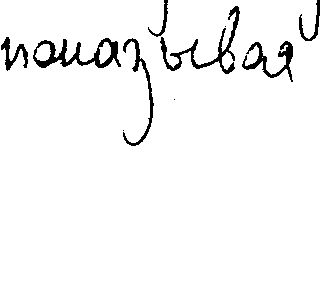 показывая